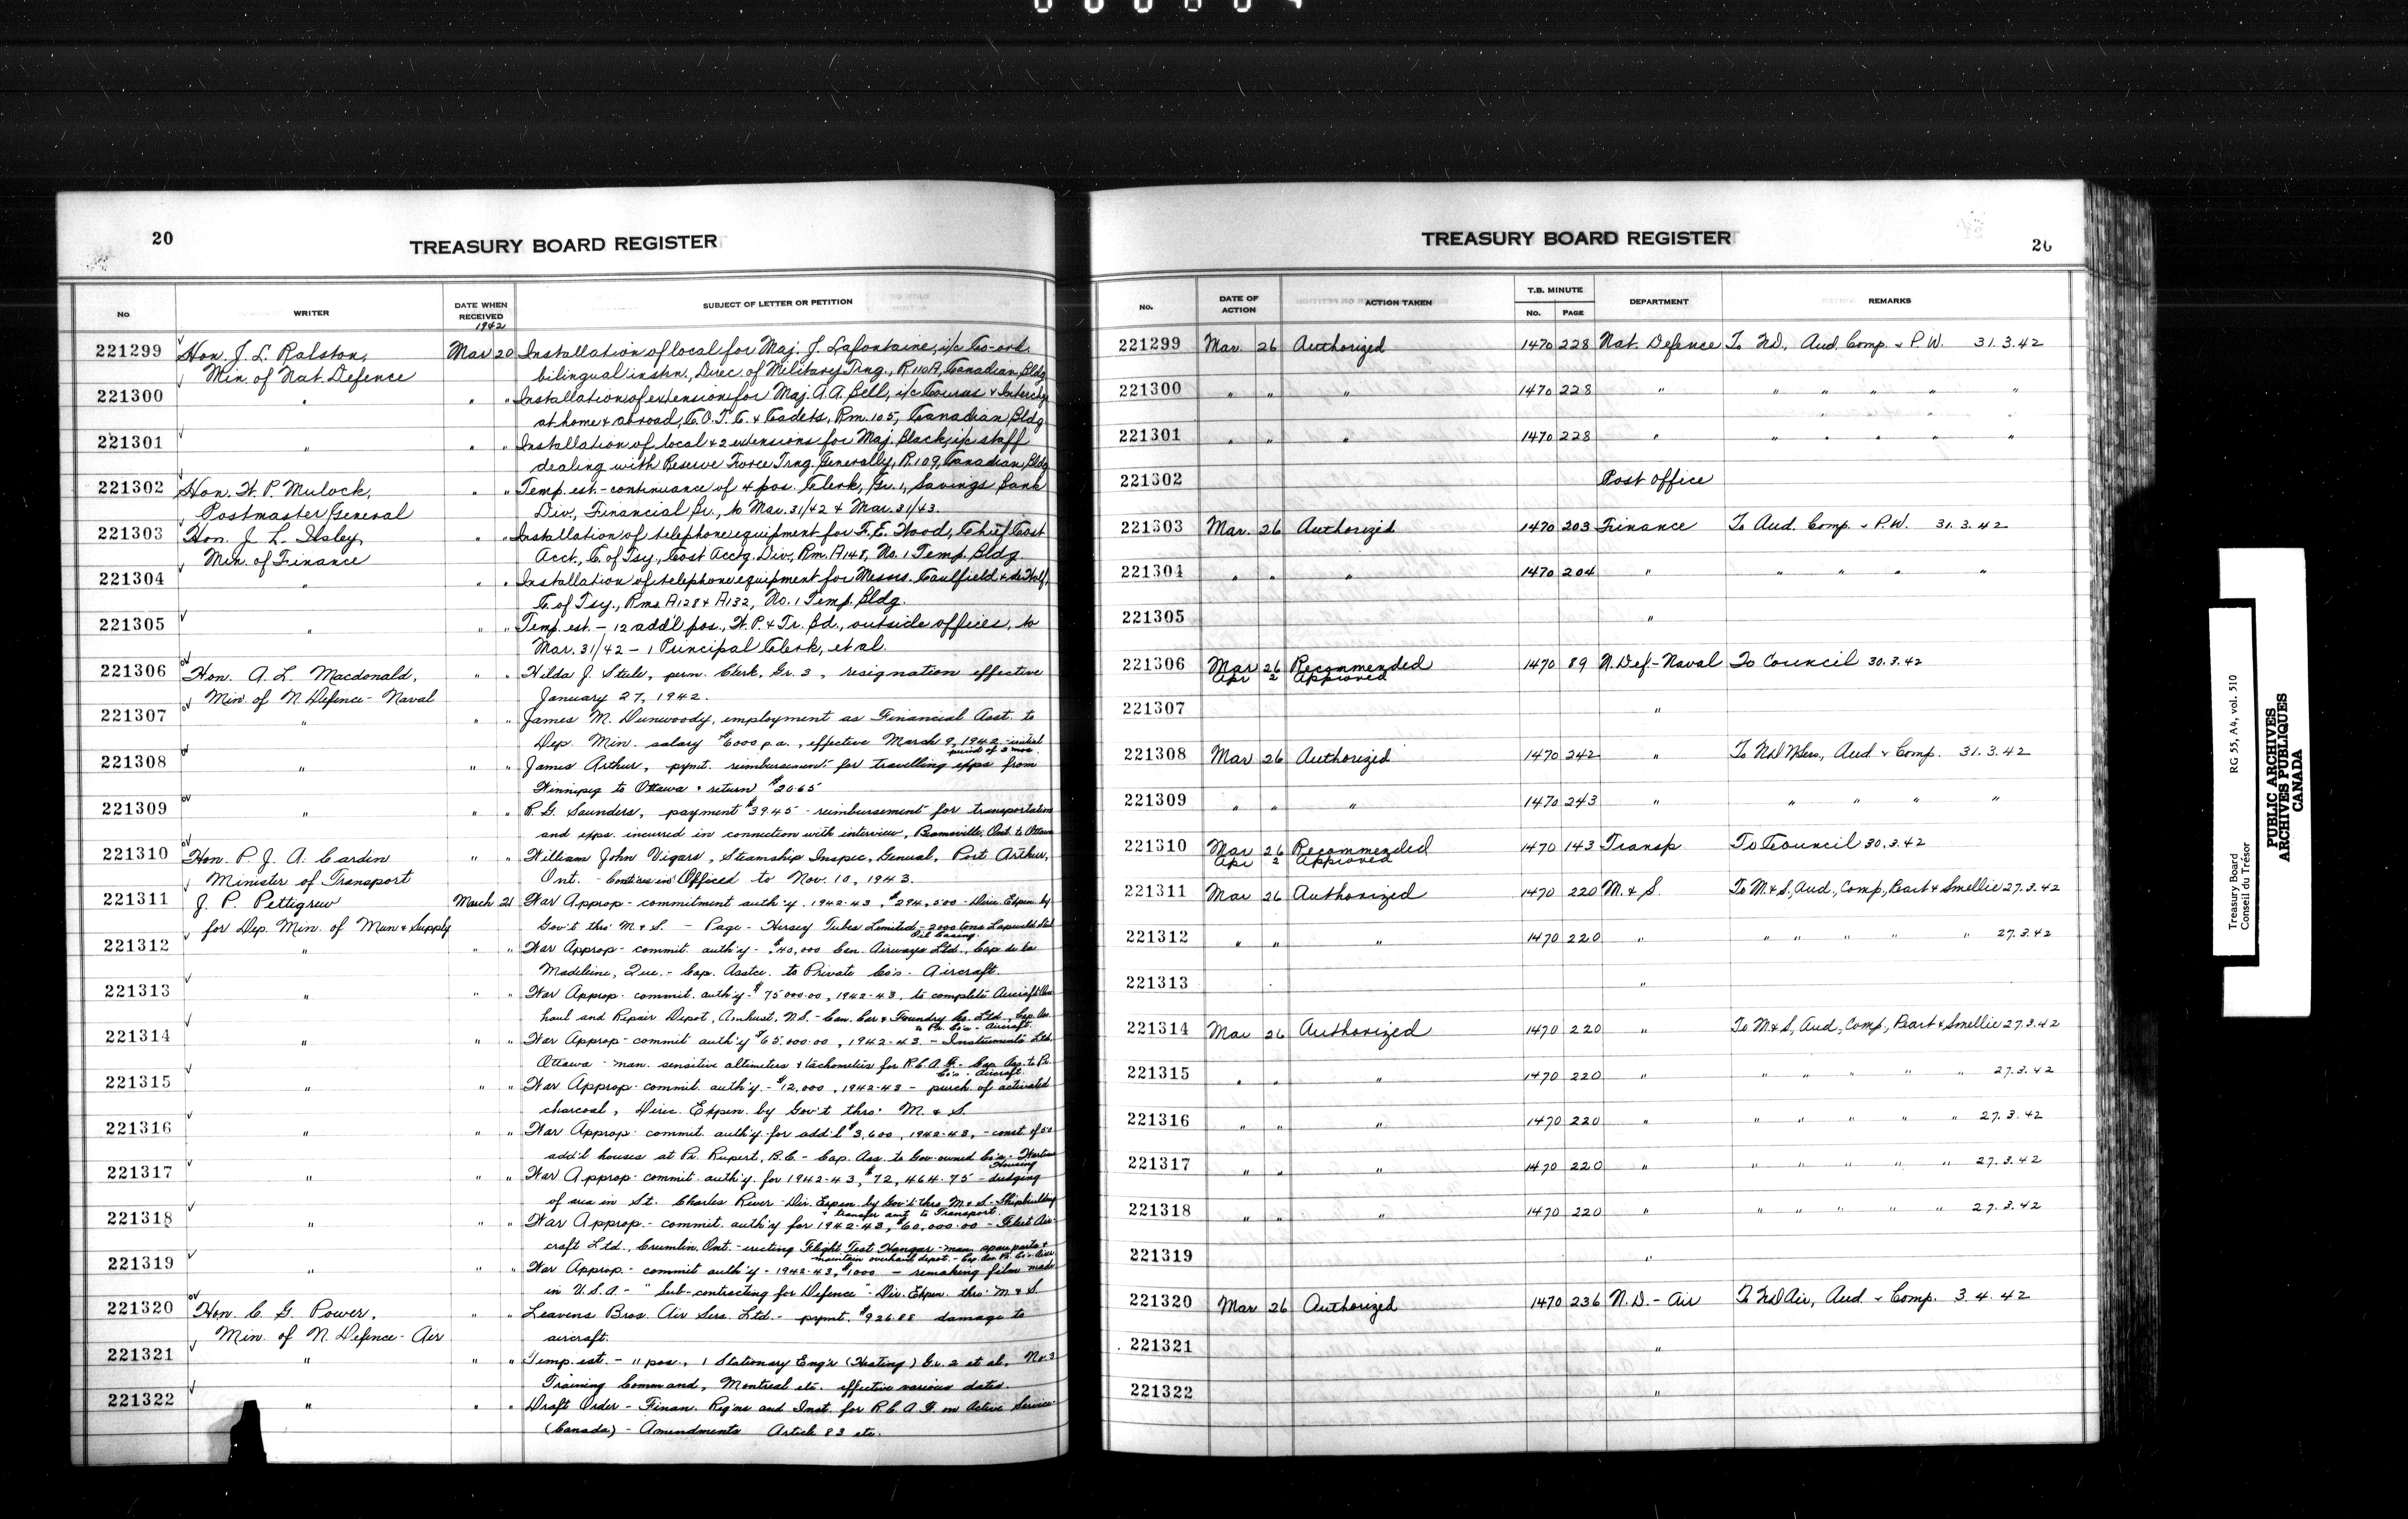 20
TREASURY BOARD REGISTER
No
WRITER
DATE WHEN RECEIVED
1942
SUBJECT OF LETTER OR PETITION
221299 Hon. J. L. Ralston, Mar 20 Installation of local for Maj. J. Lafontaine, i/c Co-ord.
Min. of Nat. Defence bilingual instn, Direc. of Military Trng., R 110A, Canadian Bldg
221300 " " " Installation of extension for Maj. A. A. Bell, i/c Courses & Interchge
at home & abroad, C.O.T.C. & Cadets, Rm. 105, Canadian Bldg.
221301 " " " Installation of local & 2 extensions for Maj. Black, i/c staff
dealing with Reserve Force Trng. Generally, R. 109, Canadian Bldg
221302 Hon. W. P. Mulock, " " Temp. est. - continuance of 4 pos. Clerk, Gr. 1, Savings Bank
Postmaster General Div., Financial Br., to Mar. 31/42 & Mar. 31/43.
221303 Hon. J. L. Ilsley, " " Installation of telephone equipment for F. E. Wood, Chief Cost
Min. of Finance Acct., C. of Tsy., Cost Acctg. Div., Rm. A148, No. 1 Temp. Bldg.
221304 " " " Installation of telephone equipment for Messrs. Caulfield & de Wolf,
C. of Tsy., Rms. A128 & A132, No. 1 Temp. Bldg.
221305 " " " Temp. est. - 12 add'l pos., W. P. & Tr. Bd., outside offices, to
Mar. 31/42 - 1 Principal Clerk, et al.
221306 Hon. A. L. Macdonald, " " Hilda J. Steele, perm. Clerk, Gr. 3, resignation effective
Min. of N. Defence - Naval January 27, 1942.
221307 " " " James M. Dunwoody, employment as Financial Asst. to
Dep. Min. salary $6000 p.a., effective March 9, 1942 - initial
period of 3 mos.
221308 " " " James Arthur, pymt. reimbursement for travelling exps from
Winnipeg to Ottawa & return $20.65
221309 " " " R. G. Saunders, payment $39.45 - reimbursement for transportation
and exps. incurred in connection with interview, Beamsville, Ont. to Ottawa
221310 Hon. P. J. A. Cardin " " William John Vigars, Steamship Inspec, General, Port Arthur,
Minister of Transport Ont. - Contce in Office to Nov. 10, 1943.
221311 J. P. Pettigrew March 21 War Approp - commitment auth'y. 1942-43, $294,500 - Direc. Expen. by
for Dep. Min. of Mun & Supply Gov't thro' M & S. - Page - Hersey Tubes Limited - 2000 tons Lapweld Steel
Oil Casing.
221312 " " " War Approp - commit. auth'y - $40,000 Can. Airways Ltd., Cap de la
Madeleine, Que. - Cap. Asstce. to Private Co's. - Aircraft.
221313 " " " War Approp - commit. auth'y - $75000.00, 1942-43, to complete Aircraft Over
haul and Repair Depot, Amherst, N.S. - Can. Car & Foundry Co. Ltd., Cap. Ass.
to Pr. Co's - Aircraft.
221314 " " " War Approp - commit auth'y $65,000.00, 1942-43 - Instruments Ltd.
Ottawa - man. sensitive altimeters & tachometers for R.C.A.F. - Cap. Ass. to Pr.
Co's - Aircraft.
221315 " " " War Approp - commit. auth'y - $12,000, 1942-43 - purch. of activated
charcoal, Direc. Expen. by Gov't thro' M. & S.
221316 " " " War Approp - commit. auth'y for add'l $3,600, 1942-43, - const. of 50
add'l houses at Pr. Rupert, B.C. - Cap. Ass. to Gov. owned Co's - Wartime
Housing
221317 " " " War Approp - commit auth'y. for 1942-43, $72,464.75 - dredging
of area in St. Charles River - Dir. Expen. by Gov't thro M & S - Shipbuilding
& transfer amt. to Transport.
221318 " " " War Approp. - commit. auth'y for 1942-43, $60,000.00 - Fleet Air-
craft Ltd., Crumlin, Ont. - erecting Flight Test Hangar - man. spare parts &
maintain overhaul depot. - Cap. Ass. Pr. Co's - Aircr.
221319 " " " War Approp. - commit auth'y - 1942-43, $1000 - remaking film made
in U.S.A. - "Sub-contracting for Defence" - Dir. Expen. thro' M & S.
221320 Hon. C. G. Power, " " Leavens Bros. Air Serv. Ltd. - pymt. $926.88 damage to
Min. of N. Defence - Air aircraft.
221321 " " " Temp. est. - 11 pos., 1 Stationary Eng'r (Heating) Gr. 2 et al, No 3
Training Command, Montreal etc. effective various dates.
221322 " " " Draft Order - Finan. Reg'ns and Inst. for R.C.A.F. on Active Service
(Canada) - Amendments Article 83 etc.
TREASURY BOARD REGISTER
20
No.
DATE OF ACTION
ACTION TAKEN
T.B. MINUTE
No. PAGE
DEPARTMENT
REMARKS
221299 Mar. 26 Authorized 1470 228 Nat. Defence To ND, Aud. Comp. & P.W. 31.3.42
221300 " " " 1470 228 " " " " " "
221301 " " " 1470 228 " " " " " "
221302 Post Office
221303 Mar. 26 Authorized 1470 203 Finance To Aud. Comp. & P.W. 31.3.42
221304 " " " 1470 204 " " " " "
221305 "
221306 Mar 26 Recommended 1470 89 N. Def - Naval To Council 30.3.42
Apr 2 Approved
221307 "
221308 Mar 26 Authorized 1470 242 " To ND NServ, Aud & Comp. 31.3.42
221309 " " " 1470 243 " " " " "
221310 Mar 26 Recommended 1470 143 Transp To Council 30.3.42
Apr 2 Approved
221311 Mar 26 Authorized 1470 220 M. & S. To M & S, Aud, Comp, Peart & Smellie 27.3.42
221312 " " " 1470 220 " " " " " " 27.3.42
221313 "
221314 Mar 26 Authorized 1470 220 " To M & S, Aud, Comp, Peart & Smellie 27.3.42
221315 " " " 1470 220 " " " " " " 27.3.42
221316 " " " 1470 220 " " " " " " 27.3.42
221317 " " " 1470 220 " " " " " " 27.3.42
221318 " " " 1470 220 " " " " " " 27.3.42
221319 "
221320 Mar 26 Authorized 1470 236 N.D. - Air To ND Air, Aud & Comp. 3.4.42
221321 "
221322 "
Treasury Board RG 55, A4, vol. 510
Conseil du Trésor
PUBLIC ARCHIVES
ARCHIVES PUBLIQUES
CANADA